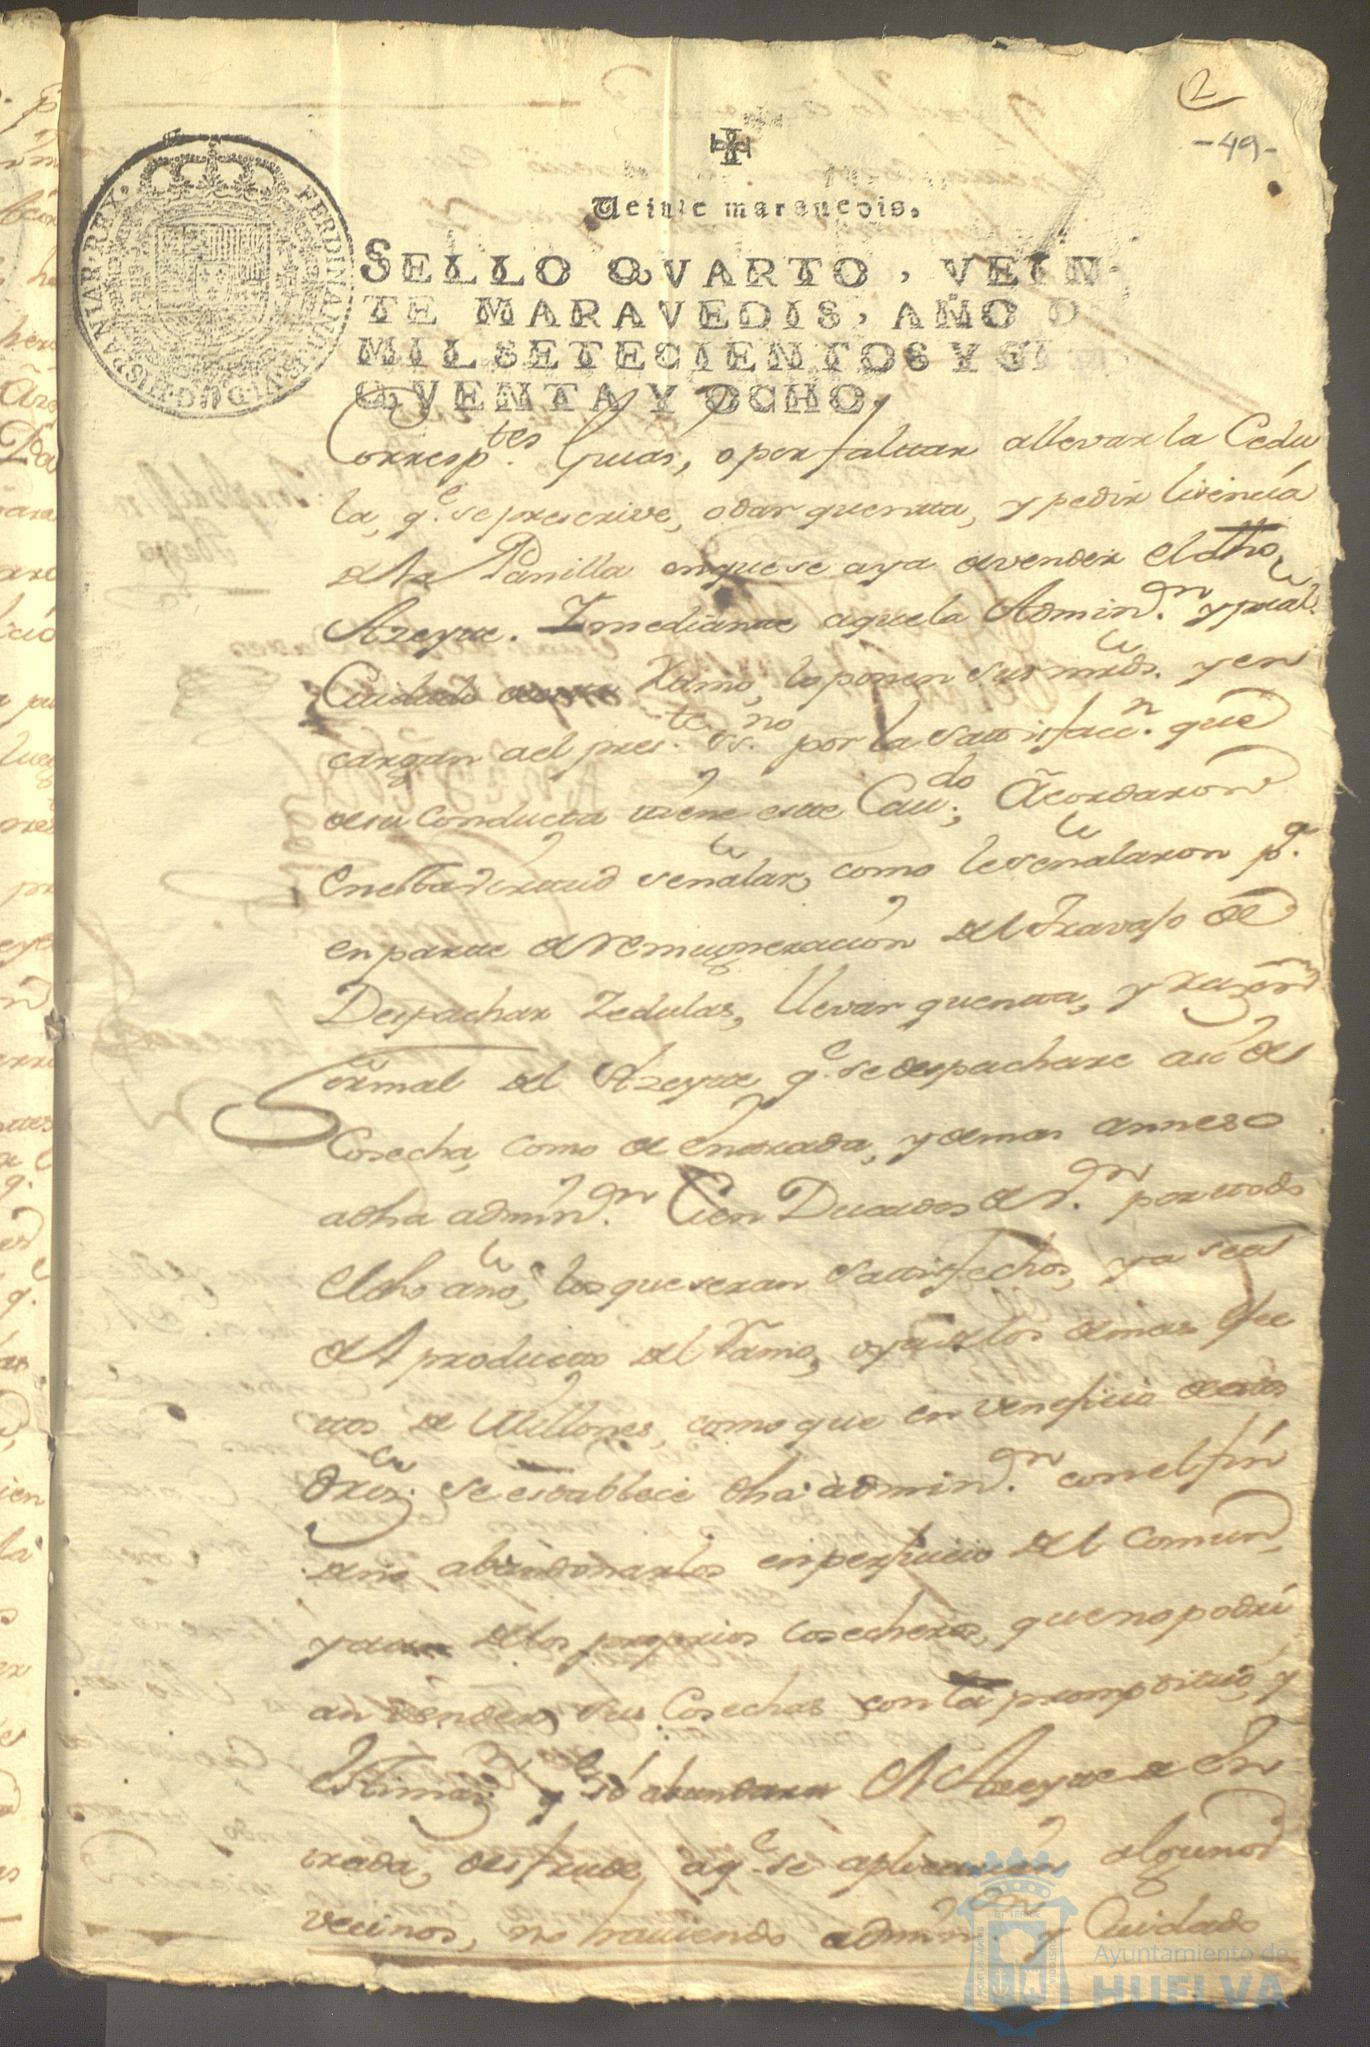 2
-49-
Veinte maravedis.
SELLO QVARTO, VEIN-
TE MARAVEDIS, AÑO D
MIL SETECIENTOS Y CIN
QVENTA Y OCHO.
FERDINAND. VI. D. G. HISPANIAR. REX.
Corresp.tes Guias, o por faltar a llevar la Cedu
la, q.e se prescrive, o dar quentta, y pedir lisencia
de la Panilla en que se aya de vender el dho
Azeyte. Y mediante a que la Admin.on y pral.
Cuidado Ramo, lo ponen sus mrds. y en
cargan a el pres.te ss.no por la satisfacc.n que
de su conducta tiene este Cau.do; Acordaron
en esta señalar, como le señalaron p.a
en parte de remugneracion del travajo de
Despachar Zedulas, llevar quentta, y razon
formal del Azeyte q.e se despachare asi de
Cosecha, como de Entrada, y demas annexo
a dha admin.on Cien Ducados de v.on por todo
el dho año, los que seran sattisfechos, ya sea
de el producto del Ramo, o ya de los demas efec
ttos de Millones, como que en veneficio de estos
dros. se establece dha admin.on con el fin
de no abandonarlos en perjuicio del Comun,
y aun de los proprios cosecheros, que no podri
an vender sus Cosechas con la promptitud, y
estimaz.on y si abundara el Azeyte de En
trada, defraude, a q.e se aplicarian algunos
vecinos, no haviendo admin.on y Cuidado
Ayuntamiento de
HUELVA